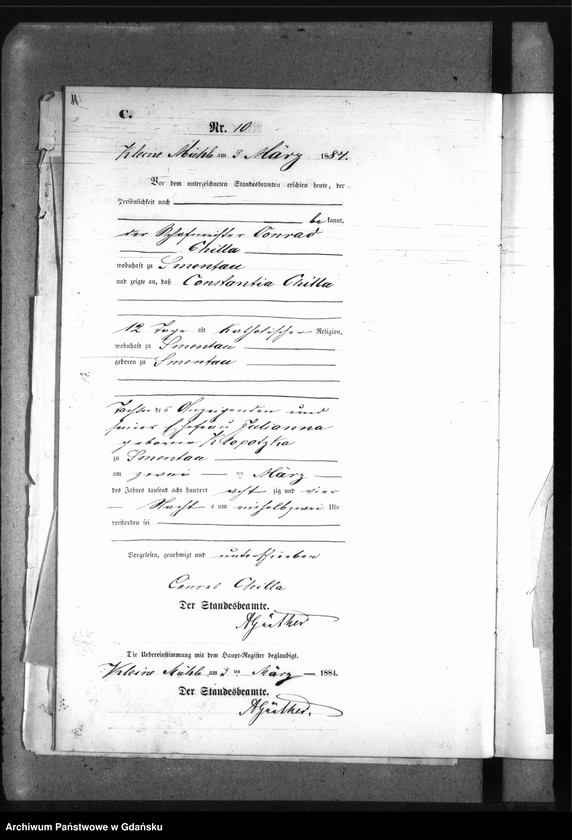 C.
Nr. 10
Kleine Mühle am 3 März 1884.
Vor dem unterzeichneten Standesbeamten erschien heute, der
Persönlichkeit nach
be kannt,
der Schafmeister Conrad
Chilla
wohnhaft zu Smentau
und zeigte an, daß Constantia Chilla
12 Tage alt katholischer Religion,
wohnhaft zu Smentau
geboren zu Smentau
Tochter des Anzeigenden und
seiner Ehefrau Julianna
geborene Klopotzka
zu Smentau
am zwei ten März
des Jahres tausend acht hundert acht zig und vier
Nacht s um einhalbzwei Uhr
verstorben sei
Vorgelesen, genehmigt und unterschrieben
Conrad Chilla
Der Standesbeamte.
AGüther
Die Uebereinstimmung mit dem Haupt-Register beglaubigt.
Kleine Mühle am 3 ten März 1884.
Der Standesbeamte.
AGüther.
Archiwum Państwowe w Gdańsku